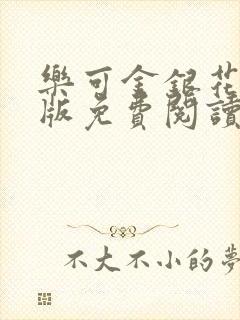 樂可金銀花
版免費閱讀
不大不小的夢